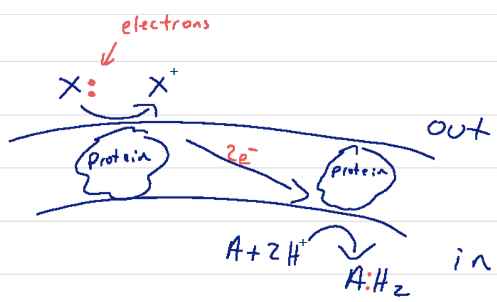 electrons
X: X⁺
out
protein
2e⁻
protein
A + 2H⁺
A:H₂
in